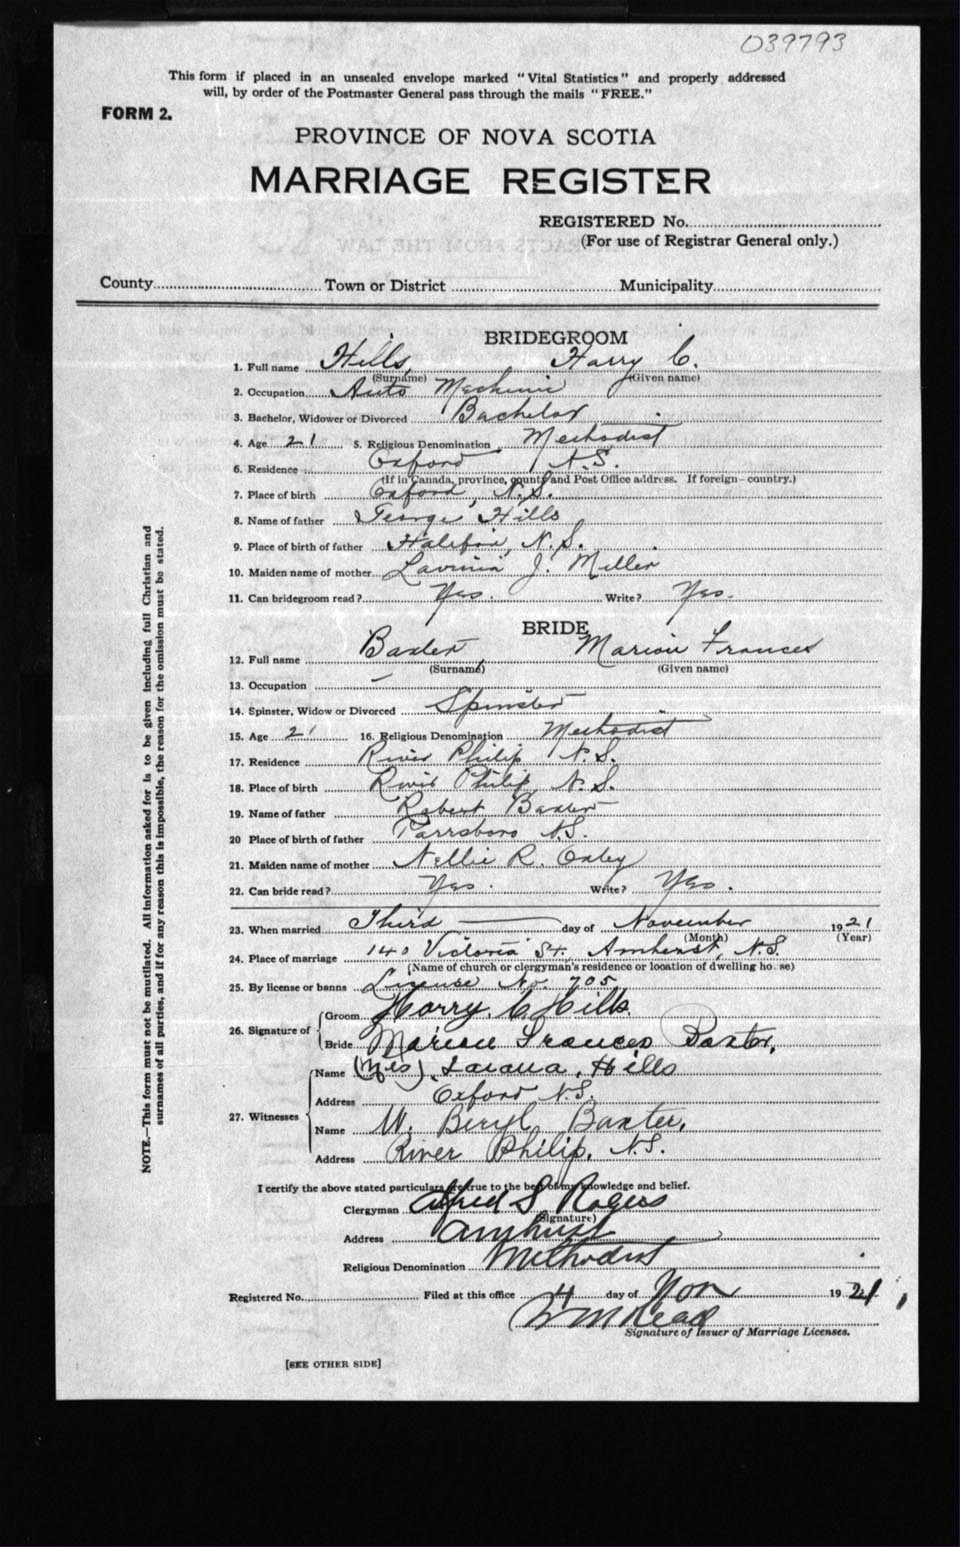 039793
This form if placed in an unsealed envelope marked "Vital Statistics" and properly addressed
will, by order of the Postmaster General pass through the mails "FREE."
FORM 2.
PROVINCE OF NOVA SCOTIA
MARRIAGE REGISTER
REGISTERED No.
(For use of Registrar General only.)
County Town or District Municipality
BRIDEGROOM
1. Full name Hills, Harry C.
(Surname) (Given name)
2. Occupation Auto Mechanic
3. Bachelor, Widower or Divorced Bachelor
4. Age 21 5. Religious Denomination Methodist
6. Residence Oxford N.S.
(If in Canada, province, county and Post Office address. If foreign - country.)
7. Place of birth Oxford, N.S.
8. Name of father George Hills
9. Place of birth of father Halifax, N.S.
10. Maiden name of mother Lavinia J. Miller
11. Can bridegroom read? Yes. Write? Yes.
BRIDE
12. Full name Baxter Marion Frances
(Surname) (Given name)
13. Occupation —
14. Spinster, Widow or Divorced Spinster
15. Age 21 16. Religious Denomination Methodist
17. Residence River Philip N.S.
18. Place of birth River Philip, N.S.
19. Name of father Robert Baxter
20 Place of birth of father Parrsboro N.S.
21. Maiden name of mother Nellie R. Oxley
22. Can bride read? Yes. Write? Yes.
23. When married Third day of November 1921
(Month) (Year)
24. Place of marriage 140 Victoria St. Amherst, N.S.
(Name of church or clergyman's residence or location of dwelling house)
25. By license or banns License No 705
26. Signature of Groom Harry C Hills.
Bride Marion Frances Baxter,
27. Witnesses Name (Mrs) Hills
Address Oxford N.S.
Name W. Beryl Baxter,
Address River Philip, N.S.
I certify the above stated particulars are true to the best of my knowledge and belief.
Clergyman Alfred S Rogers
(Signature)
Address Amherst
Religious Denomination Methodist
Registered No. Filed at this office 4 day of Nov 1921
Signature of Issuer of Marriage Licenses.
[SEE OTHER SIDE]
NOTE.—This form must not be mutilated. All information asked for is to be given including full Christian and
surnames of all parties, and if for any reason this is impossible, the reason for the omission must be stated.